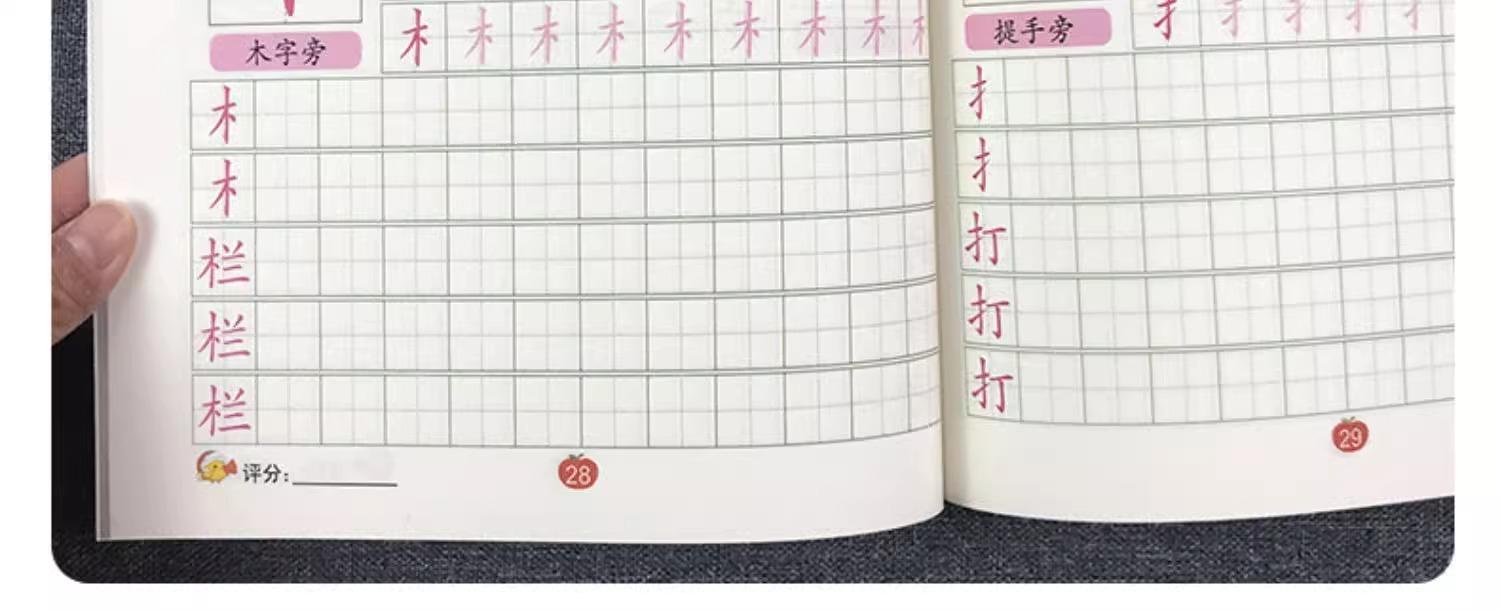 木字旁
木 木 木 木 木 木 木 木
木
木
栏
栏
栏
评分:
28
提手旁
扌 扌 扌 扌 扌
扌
扌
打
打
打
29